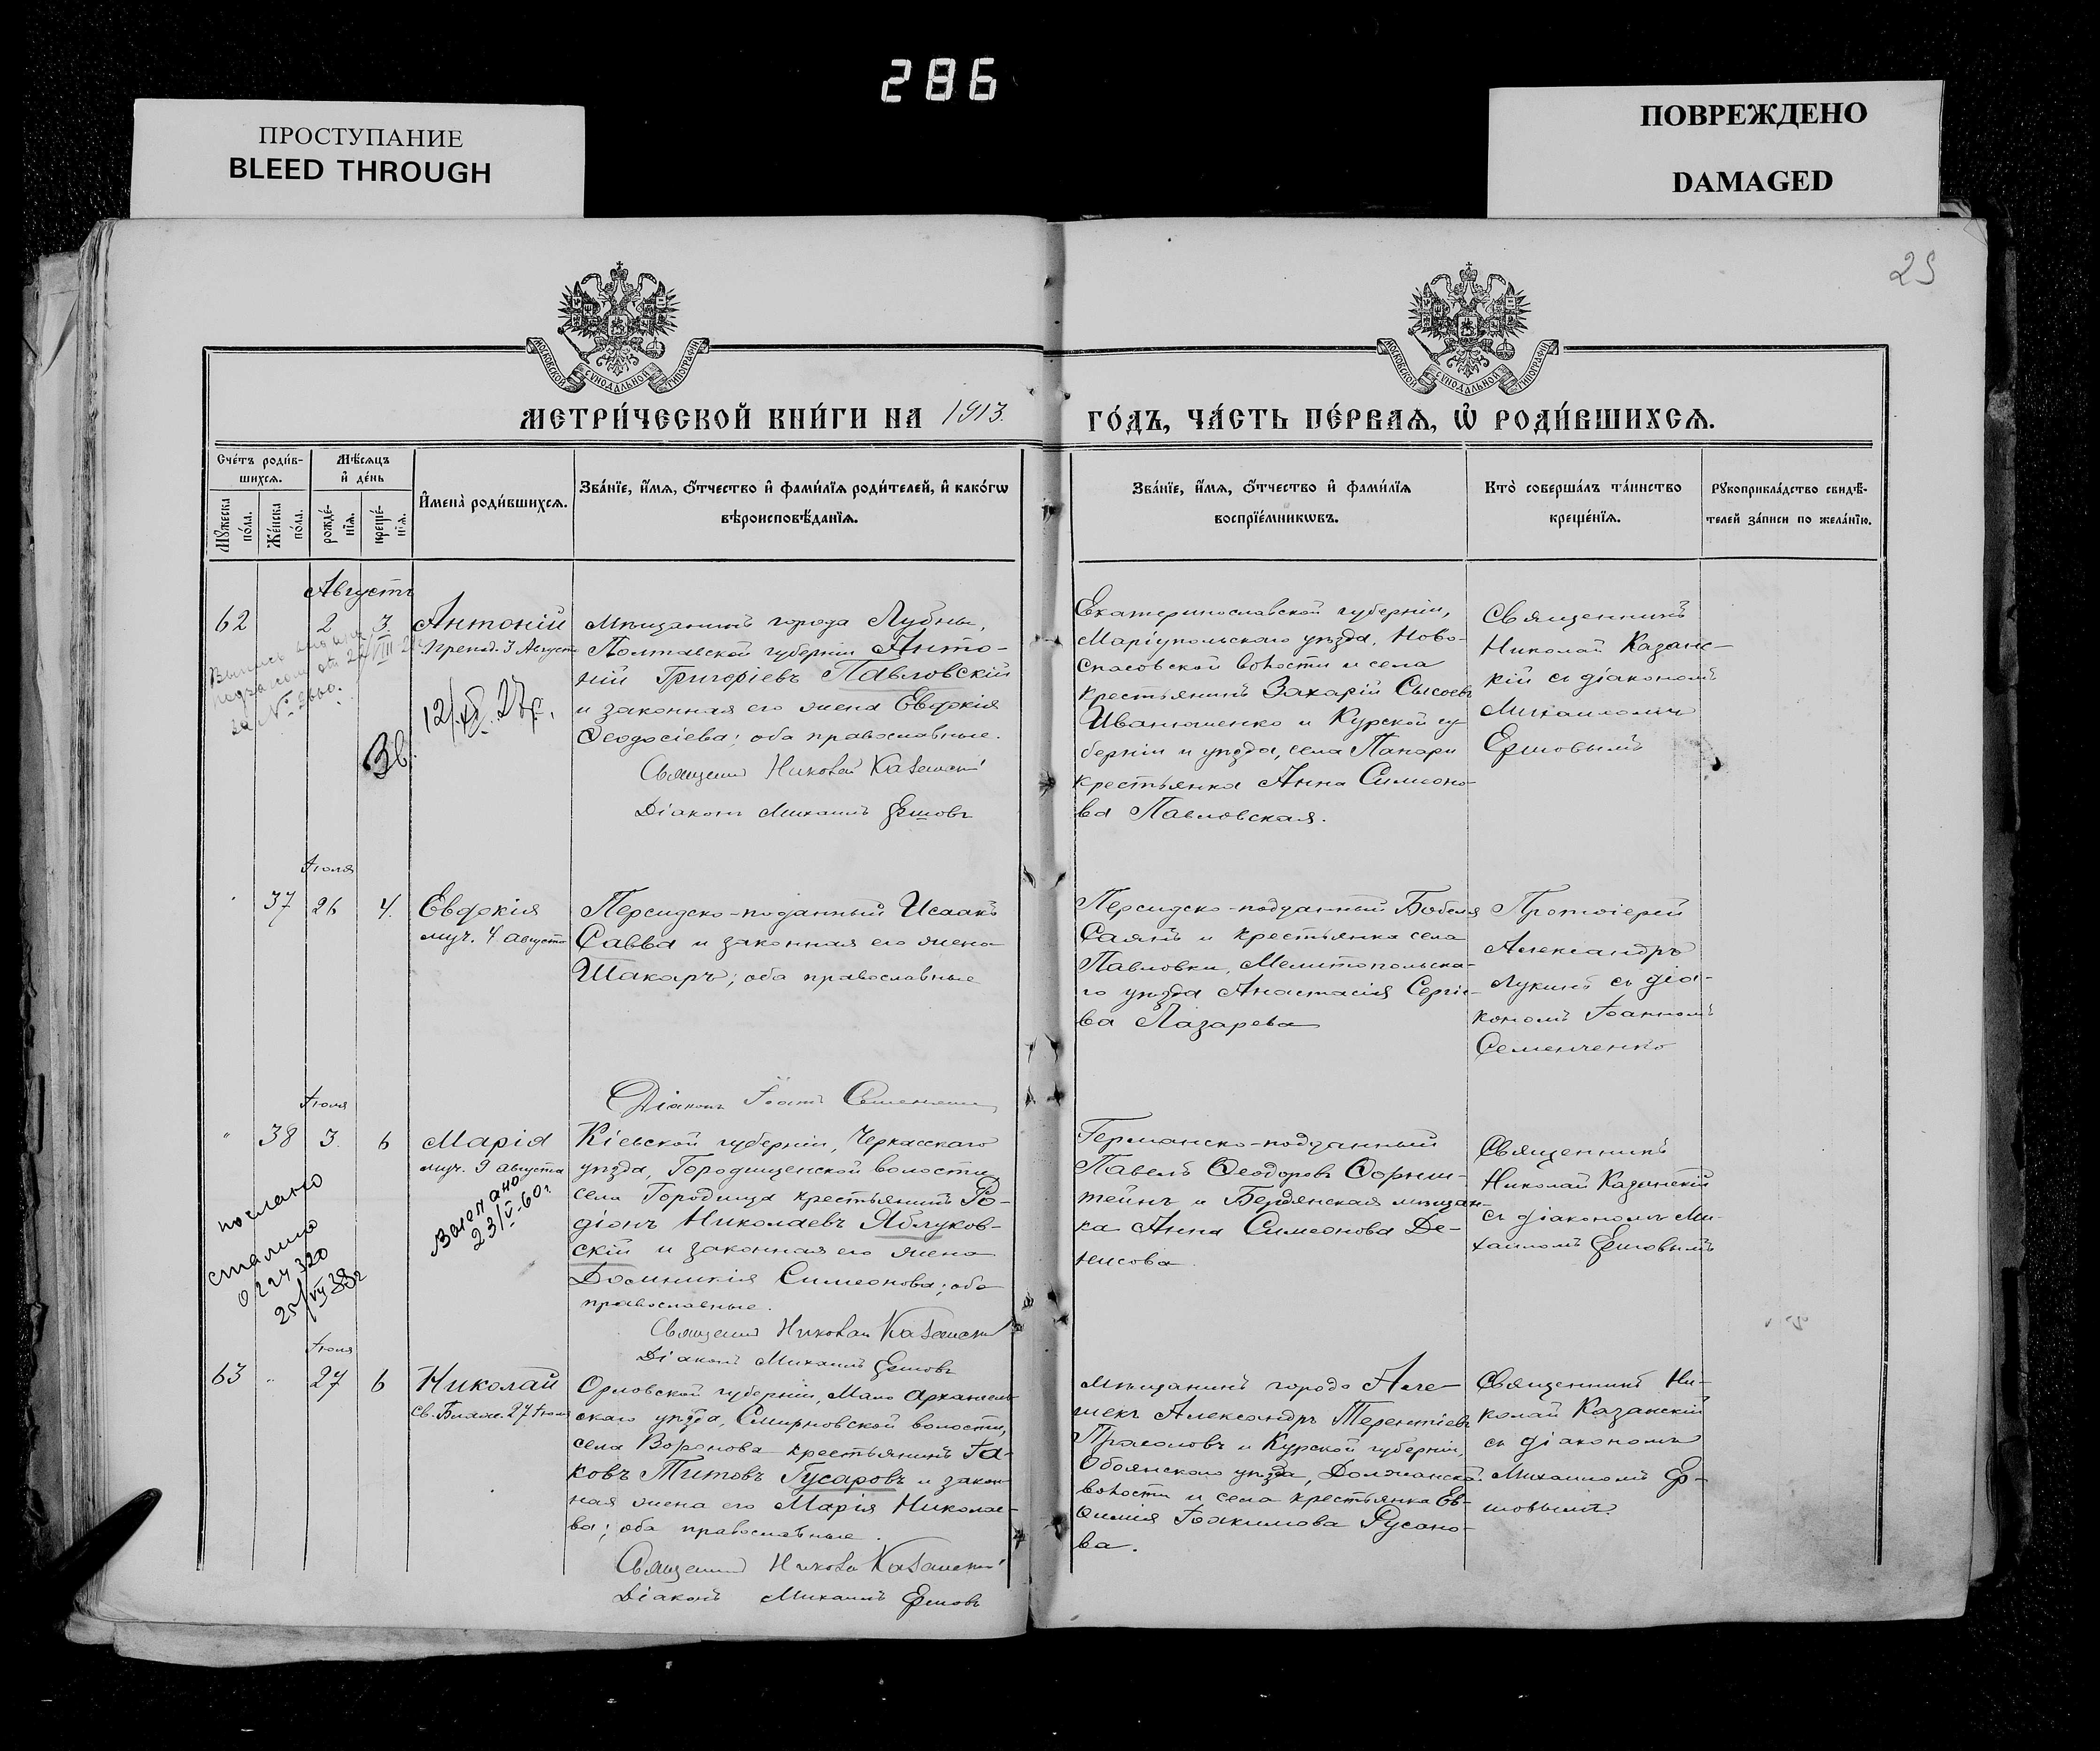 286
ПРОСТУПАНИЕ
BLEED THROUGH
ПОВРЕЖДЕНО
DAMAGED
25
МОСКОВСКОЙ СѴНОДАЛЬНОЙ ТИПОГРАФІИ
МОСКОВСКОЙ СѴНОДАЛЬНОЙ ТИПОГРАФІИ
МЕТРИ́ЧЕСКОЙ КНИ́ГИ НА 1913.
ГО́ДЪ, ЧА́СТЬ ПЕ́РВАѦ, Ѡ҆ РОДИ́ВШИХСѦ.
Сче́тъ роди́в-
шихсѧ.
Мѣ́сѧцъ
и҆ де́нь
Мꙋ́жеска
по́ла.
Же́нска
по́ла.
рожде́-
нїѧ.
креще́-
нїѧ.
И҆мена̀ роди́вшихсѧ.
Зва́нїе, и҆́мѧ, ѻ҆́тчество и҆ фами́лїѧ роди́телей, и҆ како́гѡ
вѣроисповѣ́данїѧ.
Зва́нїе, и҆́мѧ, ѻ҆́тчество и҆ фами́лїѧ
воспрїе́мникѡвъ.
Кто̀ соверша́лъ та́инство
креще́нїѧ.
Рꙋкоприкла́дство свидѣ́-
телей за́писи по жела́нїю.
Августъ
62
2
3.
Антоній
препод. 3 Августа
12/IX.27г.
Зв.
Мѣщанинъ города Лубны,
Полтавской губерніи Анто-
ній Григоріевъ Павловскій
и законная его жена Евдокія
Ѳеодосіева; оба православные.
Священникъ Николай Казанскій
Діаконъ Михаилъ Ершовъ
Екатеринославской губерніи,
Маріупольскаго уѣзда, Ново-
спасовской волости и села
крестьянинъ Захарій Сысоевъ
Иванющенко и Курской гу-
берніи и уѣзда, села
крестьянка Анна Симеоно-
ва Павловская.
Священникъ
Николай Казанс-
кій съ діакономъ
Михаиломъ
Ершовымъ
Іюля
37
26
4.
Евдокія
муч. 4 августа
Персидско-поданный Исаакъ
Савва и законная его жена
Шакаръ; оба православные
Діаконъ Іоаннъ Семенченко
Персидско-подданный
Саянъ и крестьянка села
Павловки, Мелитопольска-
го уѣзда Анастасія Сергіе-
ва Лазарева
Протоіерей
Александръ
Лукинъ съ діа-
кономъ Іоанномъ
Семенченко
Іюля
"
38
3.
6
Марія
муч. 9 августа
послано
23/V-60г
25/VII 38г
Кіевской губерніи, Черкасскаго
уѣзда, Городищенской волости
села Городища крестьянинъ Ро-
діонъ Николаевъ Яблуков-
скій и законная его жена
Домникія Симеонова; оба
православные.
Священникъ Николай Казанскій
Діаконъ Михаилъ Ершовъ
Германско-подданный
Павелъ Ѳеодоровъ
и Бердянская мѣщан-
ка Анна Симеонова Де-
нисова.
Священникъ
Николай Казанскій
съ діакономъ Ми-
хаиломъ Ершовымъ
Іюля
63
"
27
6
Николай
Св. Блаж. 27 Іюля
Орловской губерніи, Мало Архангель-
скаго уѣзда, Смирновской волости,
села Воронова крестьянинъ Іа-
ковъ Титовъ Гусаровъ и закон-
ная жена его Марія Николае-
ва; оба православные.
Священникъ Николай Казанскій
Діаконъ Михаилъ Ершовъ
Мѣщанинъ города Але-
шекъ Александръ Терентіевъ
Прасоловъ и Курской губерніи,
Обоянскаго уѣзда, Должанской
волости и села крестьянка Ев-
ѳимія Іоакимова Русано-
ва.
Священникъ Ни-
колай Казанскій
съ діакономъ
Михаиломъ Ер-
шовымъ.